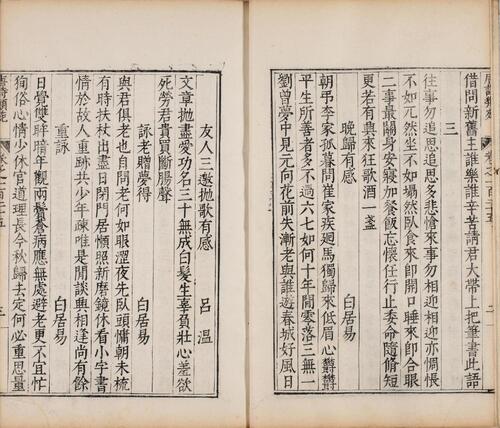 借問新舊主誰樂誰辛苦請君大帶上把筆書此語
三
往事勿追思追思多悲愴來事勿相迎相迎亦惆悵
不如兀然坐不如塌然臥食來即開口睡來即合眼
二事最關身安寢加餐飯忘懷任行止委命隨脩短
更若有興來狂歌酒一盞
晚歸有感 白居易
朝弔李家孤暮問崔家疾迴馬獨歸來低眉心鬱鬱
平生所善者多不過六七如何十年間零落三無一
劉曾夢中見元向花前失漸老與誰遊春城好風日
友人邀聽歌有感 呂溫
文章抛盡愛功名三十無成白髮生辜負壯心羞欲
死勞君貴買斷腸聲
詠老贈夢得 白居易
與君俱老也自問老何如眼澀夜先臥頭慵朝未梳
有時扶杖出盡日閉門居懶照新磨鏡休看小字書
情於故人重跡共少年疎唯是閒談興相逢尚有餘
重詠 白居易
日覺雙眸暗年觀兩鬢蒼病應無處避老更不宜忙
徇俗心情少休官道理長今秋歸去定何必重思量